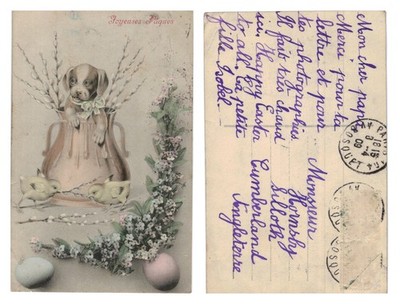 Joyeuses Pâques
Mon cher papa
Merci pour ta
lettre et pour
les photographies
Il fait très chaud
ici, Happy Easter
to all, ta petite
fille Isobel.
Monsieur
Hornsby
Silloth
Cumberland
Angleterre
PARIS
BOSQUET